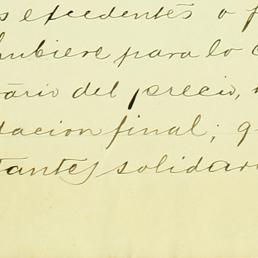 s excedentes o f
hubiere para lo c
ario del precio,
dacion final; q
tantes solidari